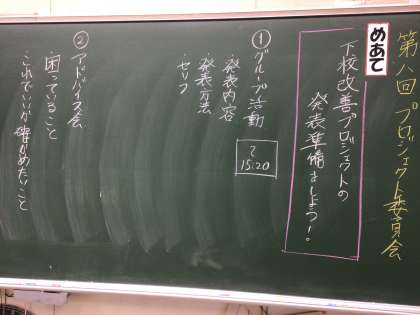 第八回 プロジェクト委員会
めあて
下校改善プロジェクトの
発表準備をしよう！
① グループ活動
・発表内容
・発表方法
・セリフ
〜15:20
② アドバイス会
・困っていること
・これでいいか確かめたいこと